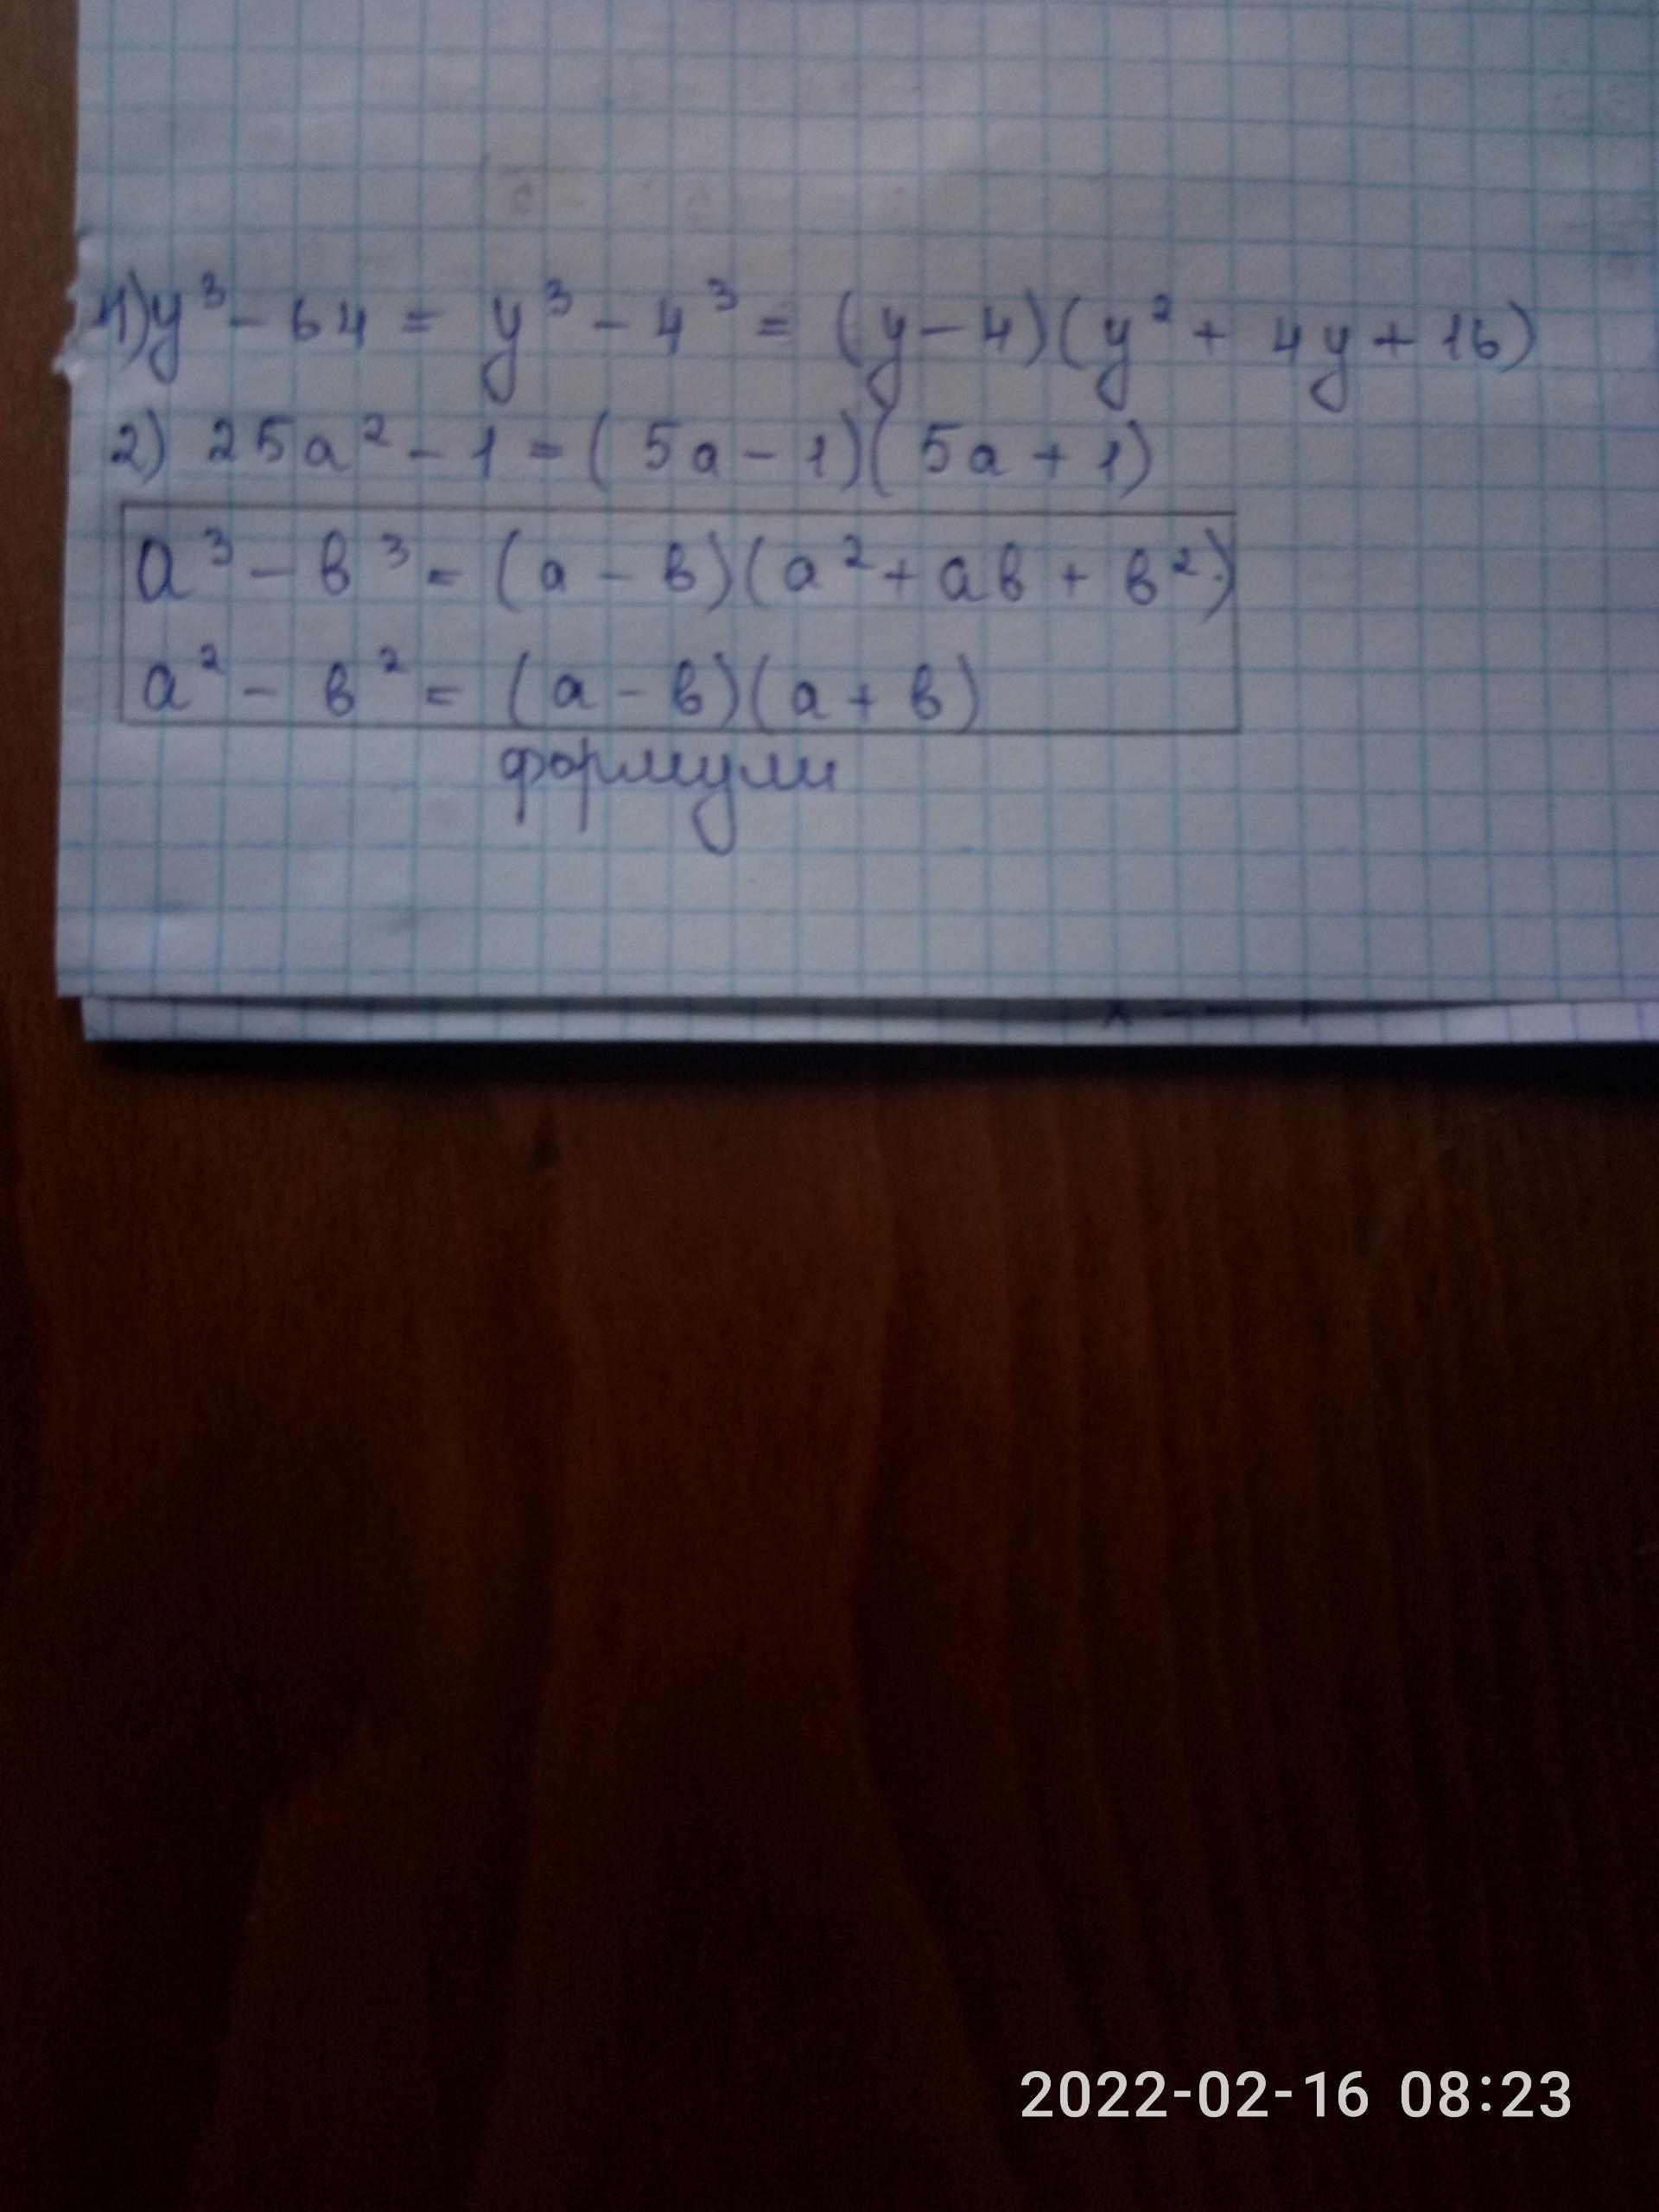 1) y³ - 64 = y³ - 4³ = (y - 4)(y² + 4y + 16)
2) 25a² - 1 = (5a - 1)(5a + 1)
a³ - в³ = (a - в)(a² + aв + в²)
a² - в² = (a - в)(a + в)
формули
2022-02-16 08:23